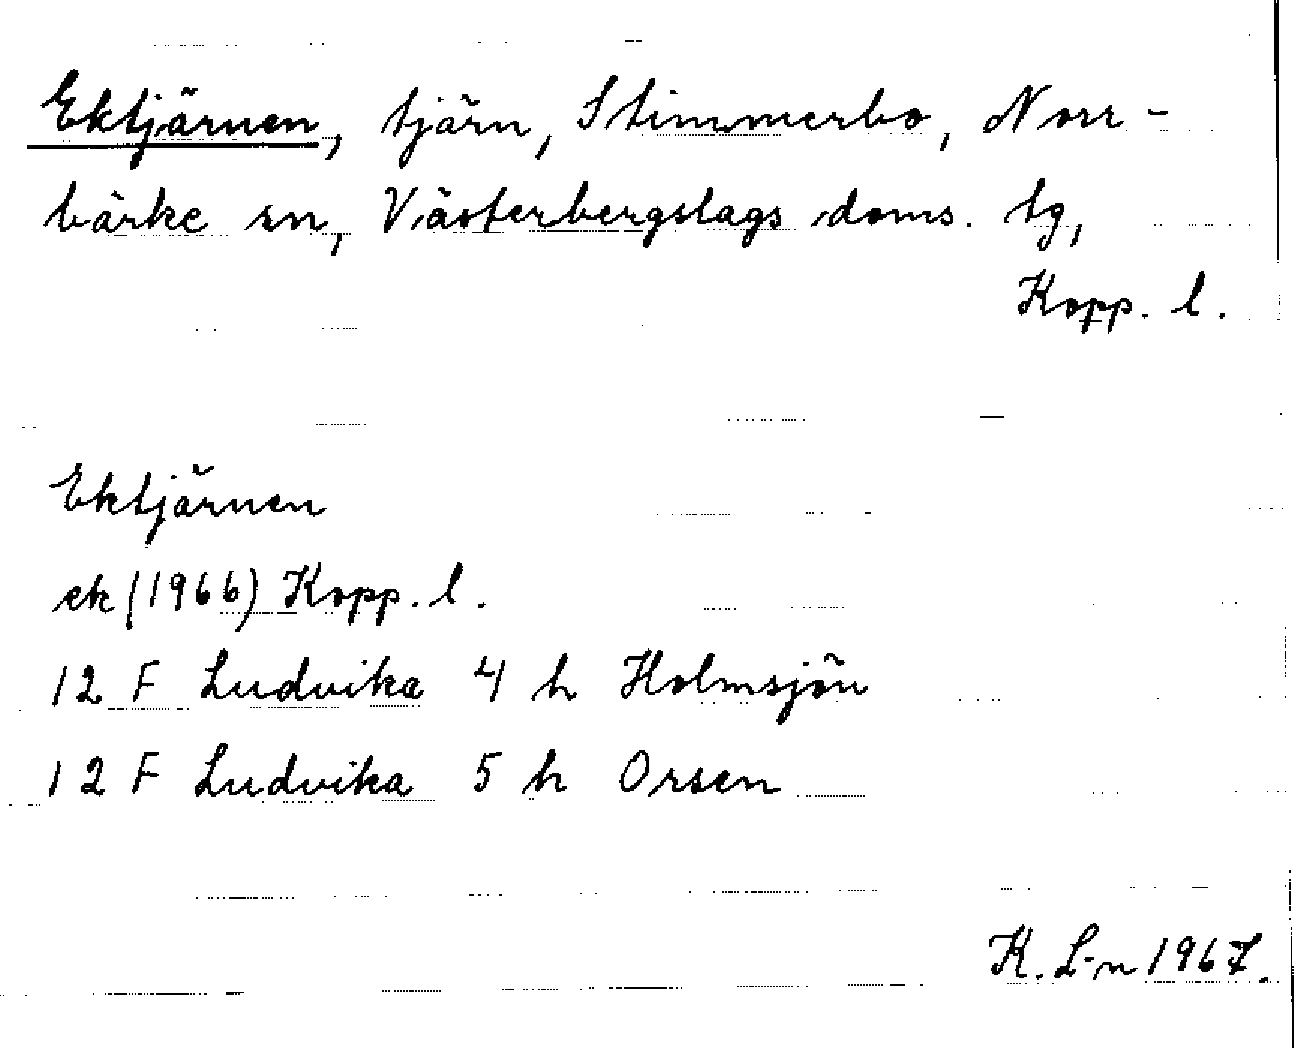 Ektjärnen, tjärn, Stimmerbo, Norr-
bärke sn, Västerbergslags doms. tg,
Kopp. l.
Ektjärnen
ek (1966) Kopp. l.
12 F Ludvika 4 h Holmsjön
12 F Ludvika 5 h Orsen
K. L-n 1967.